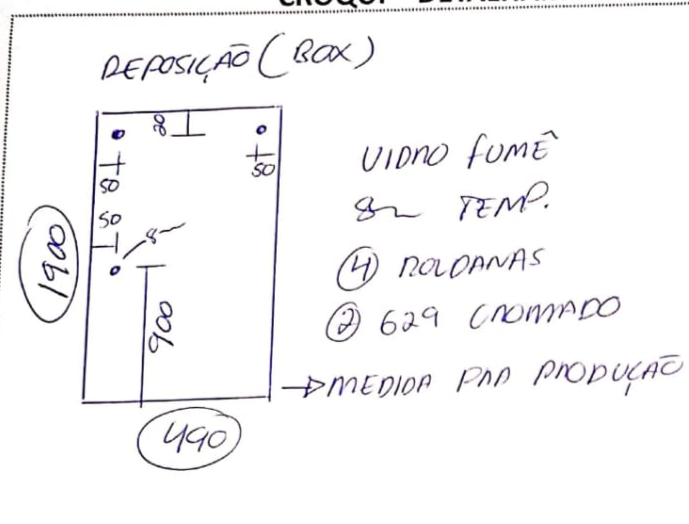 REPOSIÇÃO (BOX)
20
50
50
50
8
1900
900
490
VIDRO FUMÊ
8 TEMP.
④ ROLDANAS
② 629 CROMADO
→ MEDIDA PRA PRODUÇÃO